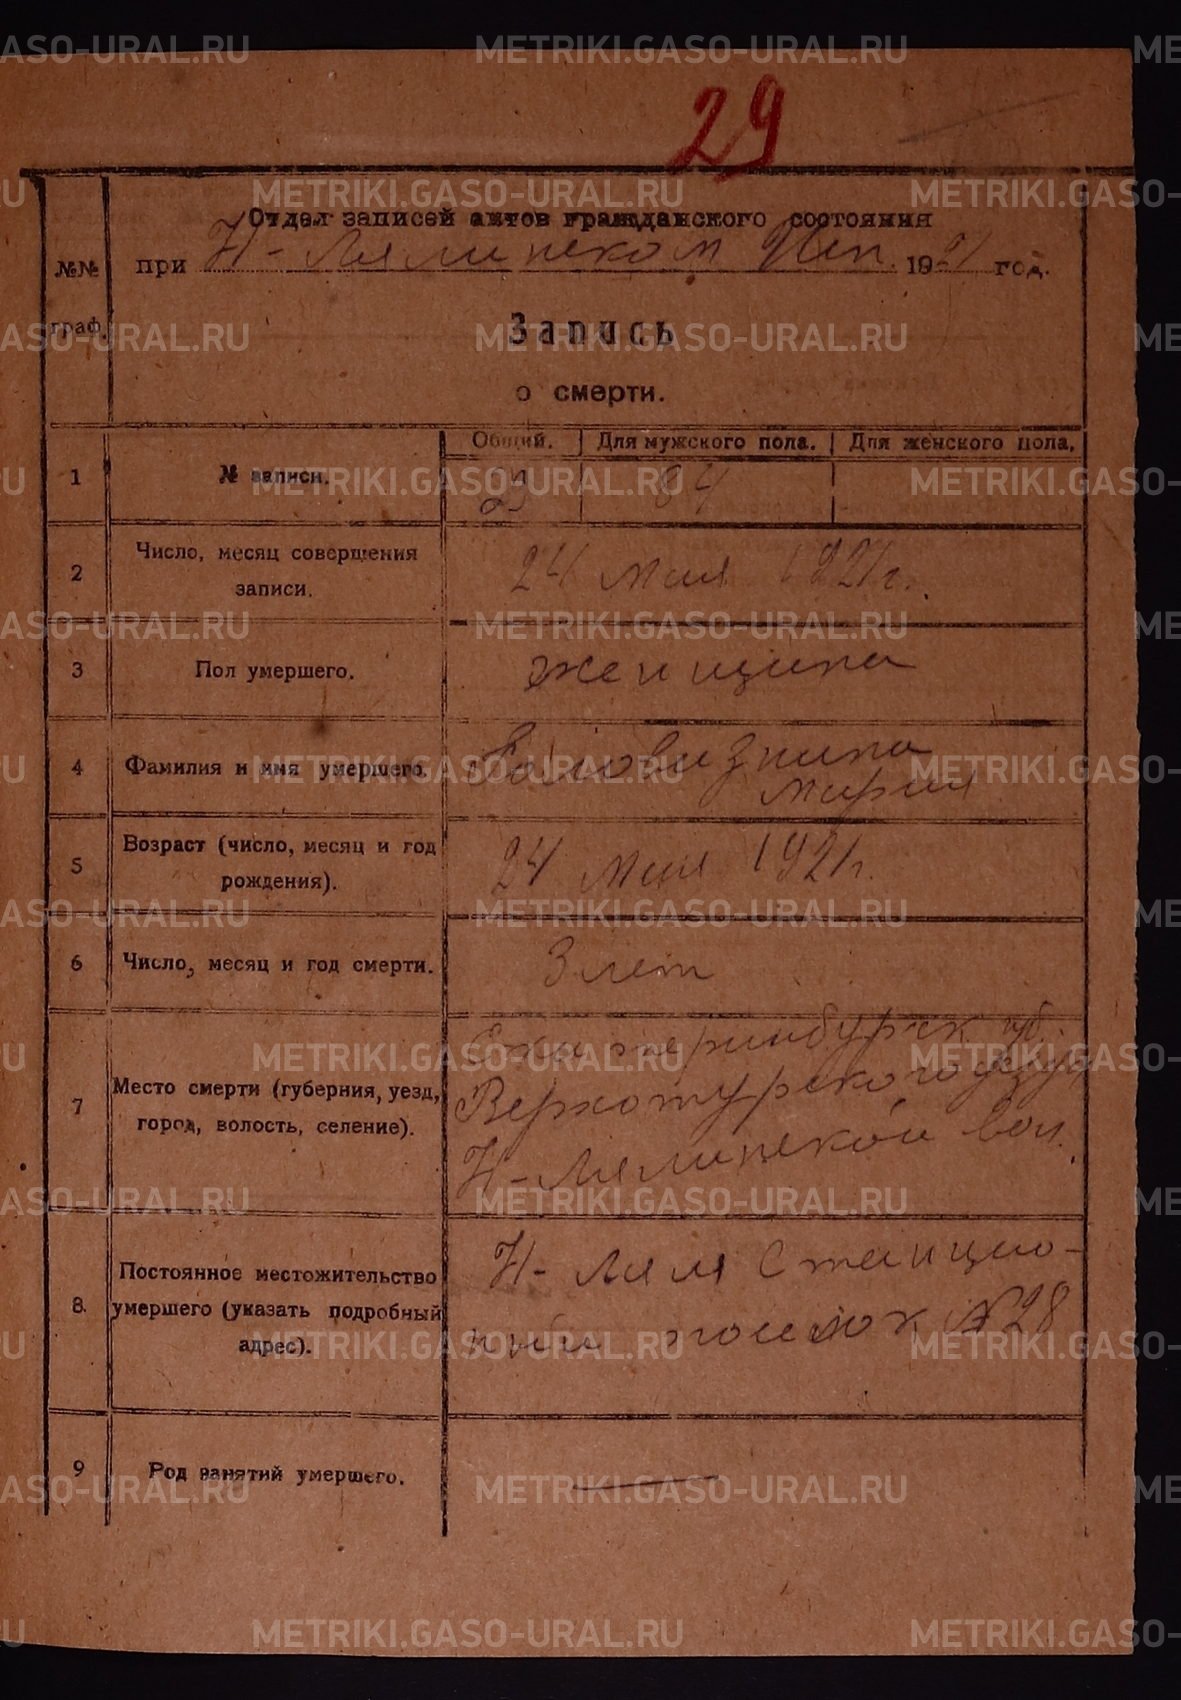 29
Отдел записей актов гражданского состояния
№№ при Н-Лялинском Исп. 1921 год.
граф.
Запись
о смерти.
Общий. Для мужского пола. Для женского пола.
1 № записи. 29 34
2 Число, месяц совершения
записи.
24 мая 1921 г.
3 Пол умершего. женщина
4 Фамилия и имя умершего.
Мария
5 Возраст (число, месяц и год
рождения).
24 мая 1921 г.
6 Число, месяц и год смерти. 3 лет
7 Место смерти (губерния, уезд,
город, волость, селение).
Екатеринбургск губ.
Верхотурского уезда
Н-Лялинской вол.
8. Постоянное местожительство
умершего (указать подробный
адрес).
Н-Ляля Станцио-
ный поселок №28
9 Род занятий умершего. —
METRIKI.GASO-URAL.RU